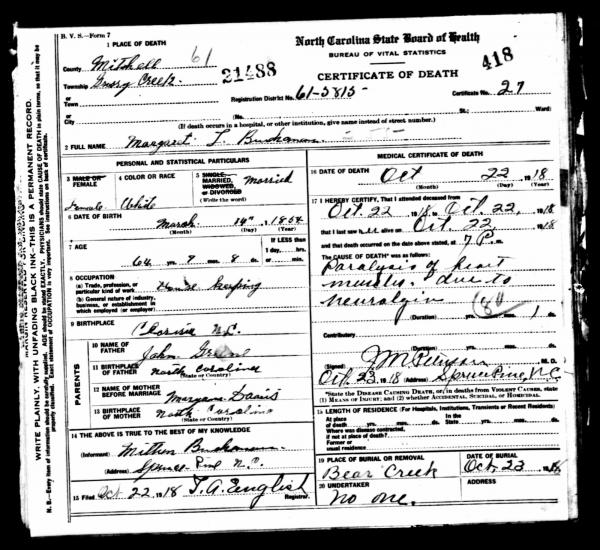 B. V. S.—Form 7
North Carolina State Board of Health
BUREAU OF VITAL STATISTICS
CERTIFICATE OF DEATH
418
1 PLACE OF DEATH
County Mitchell 61
Township Grassy Creek 21488
Registration District No. 61-5815- Certificate No. 27
or
Town
or
City (No. St.; Ward)
(If death occurs in a hospital, or other institution, give name instead of street number.)
2 FULL NAME Margaret L. Buchanan
PERSONAL AND STATISTICAL PARTICULARS
3 MALE OR FEMALE Female
4 COLOR OR RACE White
5 SINGLE, MARRIED, WIDOWED, or DIVORCED (Write the word) Married
6 DATE OF BIRTH March 14th, 1854
(Month) (Day) (Year)
7 AGE 64 yrs. 7 mos. 8 ds.
If LESS than 1 day, hrs. or min.
8 OCCUPATION
(a) Trade, profession, or particular kind of work House keeping
(b) General nature of industry, business, or establishment in which employed (or employer)
9 BIRTHPLACE N.C.
PARENTS
10 NAME OF FATHER John Greene
11 BIRTHPLACE OF FATHER North Carolina
(State or County)
12 NAME OF MOTHER BEFORE MARRIAGE Davis
13 BIRTHPLACE OF MOTHER North Carolina
(State or County)
14 THE ABOVE IS TRUE TO THE BEST OF MY KNOWLEDGE
(Informant) Buchanan
(Address) Spruce Pine N.C.
15 Filed Oct 22, 1918 T. A. English
Registrar.
MEDICAL CERTIFICATE OF DEATH
16 DATE OF DEATH Oct 22, 1918
(Month) (Day) (Year)
17 I HEREBY CERTIFY, That I attended deceased from
Oct. 22, 1918, to Oct. 22, 1918
that I last saw her alive on Oct. 22, 1918
and that death occurred on the date above stated, at 7 P m.
The CAUSE OF DEATH* was as follows:
paralysis of heart
muscles due to
neuralgia
(Duration) yrs. mos. 1 ds.
Contributory
(Duration) yrs. mos. ds.
(Signed) J. M. Peterson M. D.
Oct. 23, 1918 (Address) Spruce Pine, N.C.
*State the DISEASE CAUSING DEATH, or, in deaths from VIOLENT CAUSES, state
(1) MEANS OF INJURY; and (2) whether ACCIDENTAL, SUICIDAL, or HOMICIDAL.
18 LENGTH OF RESIDENCE (For Hospitals, Institutions, Transients or Recent Residents)
At place of death yrs. mos. ds.
In the State yrs. mos. ds.
Where was disease contracted, if not at place of death?
Former or usual residence
19 PLACE OF BURIAL OR REMOVAL Bear Creek
DATE OF BURIAL Oct. 23, 1918
20 UNDERTAKER no one.
WRITE PLAINLY, WITH UNFADING BLACK INK—THIS IS A PERMANENT RECORD.
N. B.—Every item of information should be carefully supplied. AGE should be stated EXACTLY. PHYSICIANS should state CAUSE OF DEATH in plain terms, so that it may be properly classified. Exact statement of OCCUPATION is very important. See instructions on back of certificate.